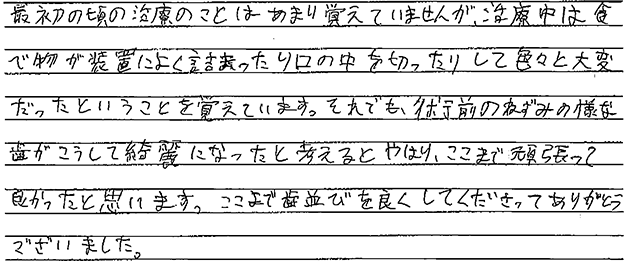 最初の頃の治療のことはあまり覚えていませんが、治療中は食
べ物が装置によく詰まったり口の中を切ったりして色々と大変
だったということを覚えています。それでも、行う前のねずみの様な
歯がこうして綺麗になったと考えるとやはり、ここまで頑張って
良かったと思います。ここまで歯並びを良くしてくださってありがとう
ございました。